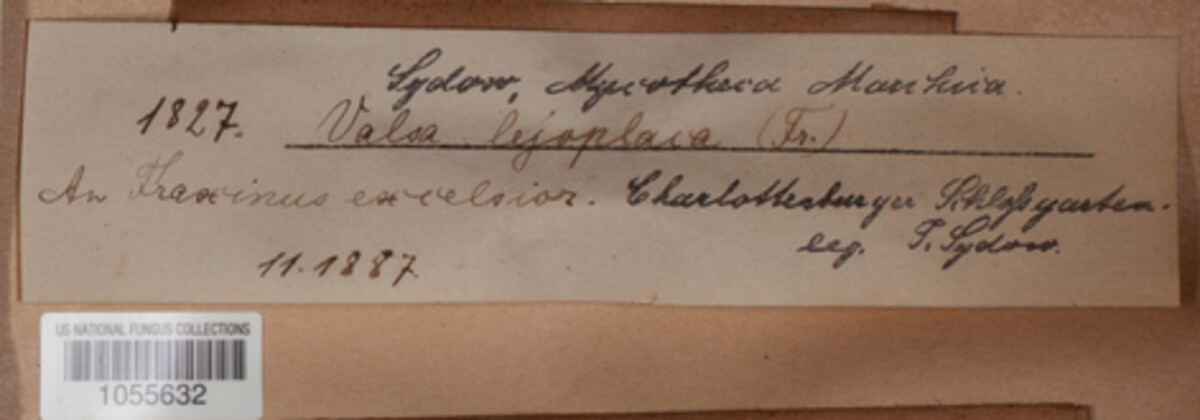 Sydow, Mycotheca Marchica.
1827. Valsa lejoplaca (Fr.)
An Fraxinus excelsior. Charlottenburger Schloßgarten.
leg. P. Sydow.
11.1887.
US NATIONAL FUNGUS COLLECTIONS
1055632